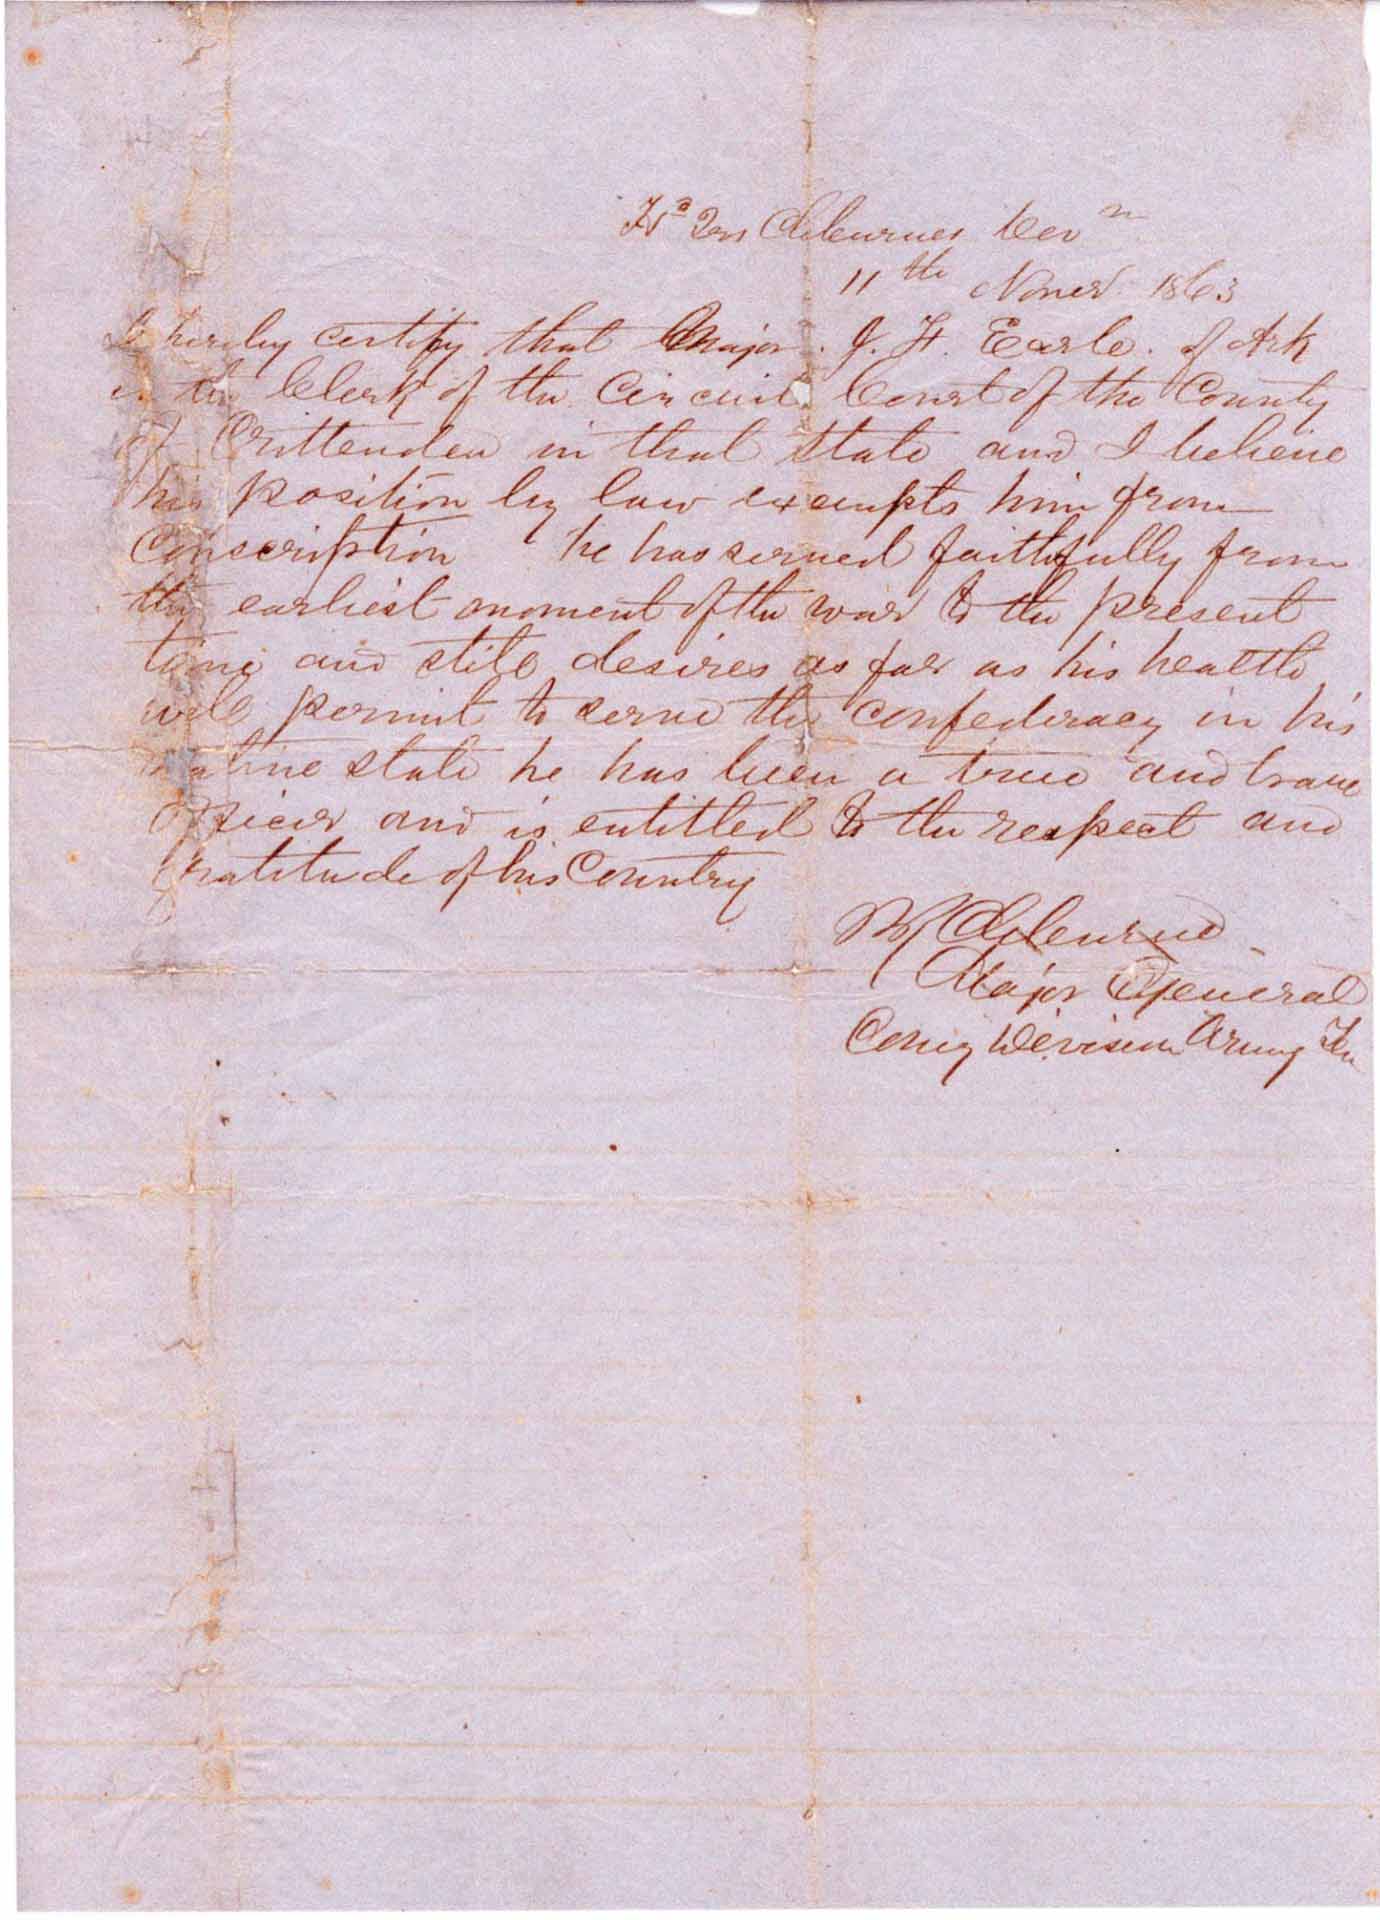 Hd Qrs Cleburnes Devn
11th Nover. 1863
I hereby certify that Major. J. F. Earle. of Ark
is the Clerk of the Circuit Court of the County
of Crittenden in that state and I believe
his position by law exempts him from
Conscription he has served faithfully from
the earliest moment of the war to the present
time and still desires as far as his health
will permit to serve the confederacy in his
native state he has been a true and brave
officer and is entitled to the respect and
Gratitude of his Country
Cleburne
Major General
Comg Devision Army Tn